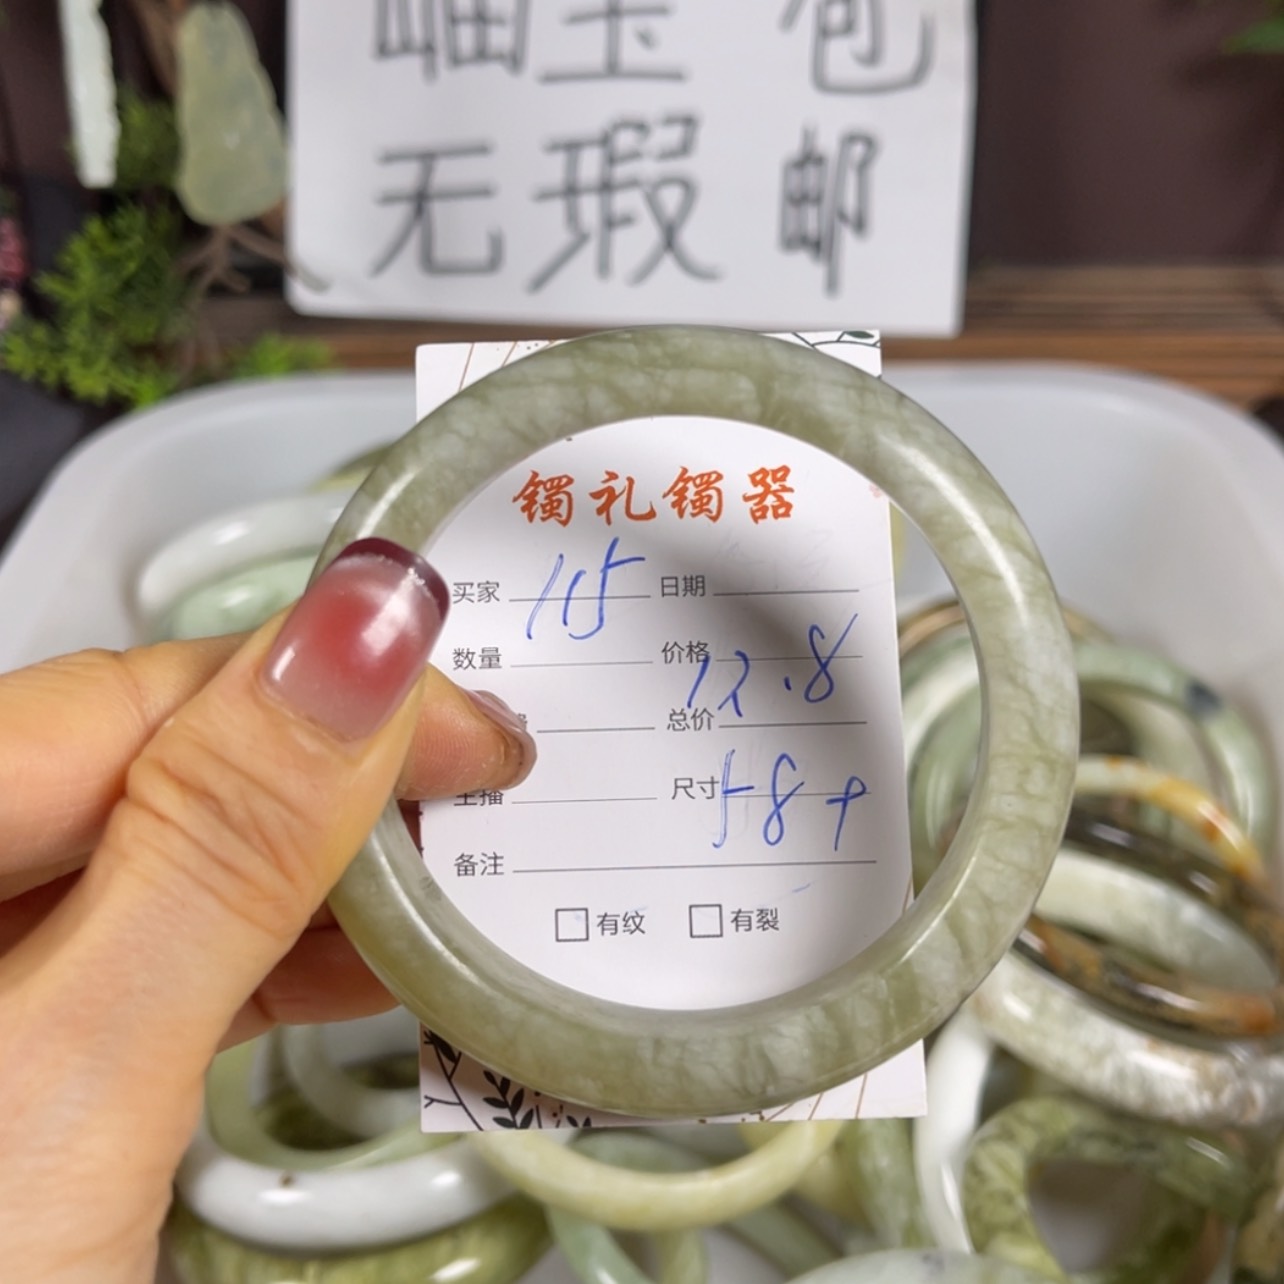 岫玉 包
无瑕 邮
镯礼镯器
买家 115 日期
数量 价格 12.8
总价
主播 尺寸 58+
备注
□有纹 □有裂